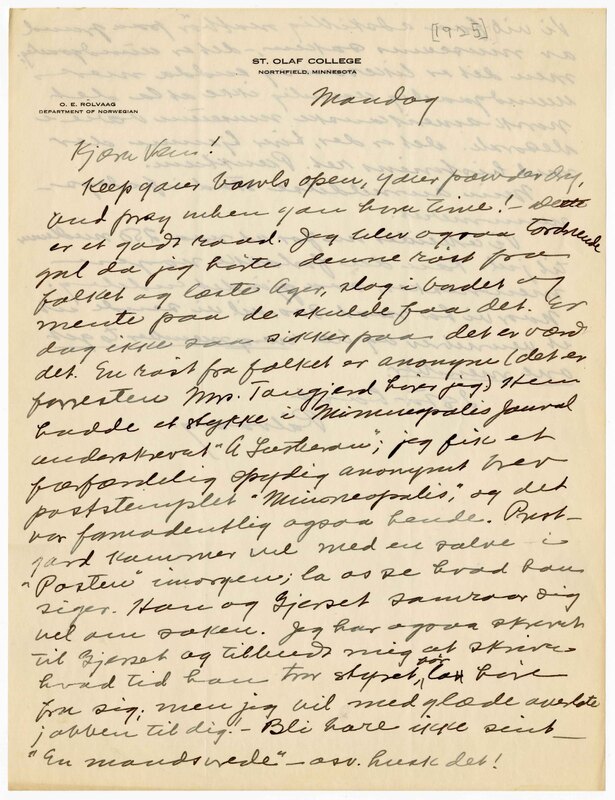 [1925]
ST. OLAF COLLEGE
NORTHFIELD, MINNESOTA
O. E. RÖLVAAG
DEPARTMENT OF NORWEGIAN
Mandag
Kjære Ven!
Keep your bowls open, your powder dry,
and pray when you have time! – Dette
er et godt raad. Jeg blev ogsaa tordnende
gal da jeg hørte denne røst fra
folket og læste Ager, slog i bordet og
mente paa de skulde faa det. Er
dog ikke saa sikker paa det er værd
det. En røst fra folket er anonym (det er
forresten Mrs. Tangjerd hører jeg) Hun
hadde et stykke i Minneapolis Journal
underskrevet "A Lutheran"; jeg fik et
færfærdelig spydig anonymt brev
poststemplet "Minneapolis", og det
var formodentlig ogsaa hende. Prest-
gard kommer vel med en salve i
"Posten" imorgen; la os se hvad han
siger. Han og Gjerset samraar sig
vel om saken. Jeg har ogsaa skrevet
til Gjerset og tilbudt mig at skrive
hvad tid han tror styret bør la høre
fra sig; men jeg vil med glæde overlate
jobben til dig! – Bli bare ikke sint –
"En mands vrede" – osv. husk det!